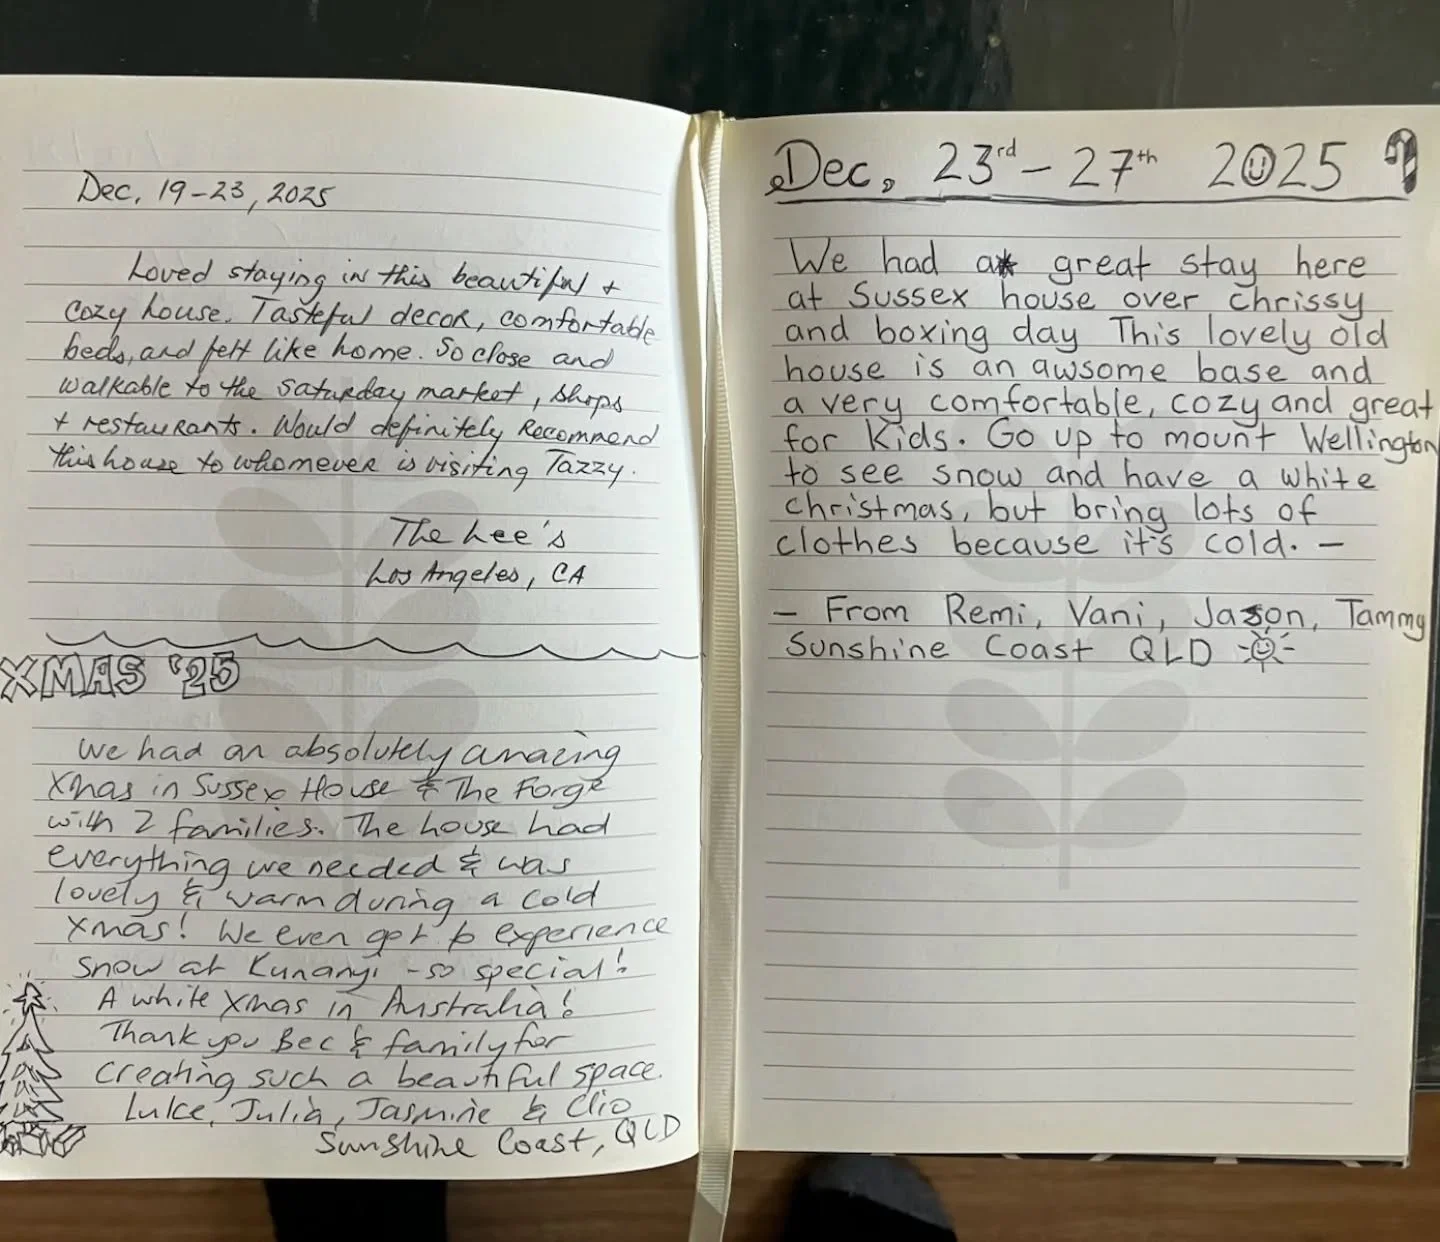 Dec. 19-23, 2025
Loved staying in this beautiful +
cozy house. Tasteful decor, comfortable
beds, and felt like home. So close and
walkable to the saturday market, shops
+ restaurants. Would definitely recommend
this house to whomever is visiting Tazzy.
The Lee's
Los Angeles, CA
XMAS '25
We had an absolutely amazing
Xmas in Sussex House & The Forge
with 2 families. The house had
everything we needed & was
lovely & warm during a cold
Xmas! We even got to experience
snow at Kunanyi - so special!
A white Xmas in Australia!
Thank you Bec & family for
creating such a beautiful space.
Luke, Julia, Jasmine & Clio
Sunshine Coast, QLD
Dec. 23rd - 27th 2025
We had a great stay here
at Sussex house over chrissy
and boxing day This lovely old
house is an awsome base and
a very comfortable, cozy and great
for Kids. Go up to mount Wellington
to see snow and have a white
christmas, but bring lots of
clothes because it's cold. -
- From Remi, Vani, Jason, Tammy
Sunshine Coast QLD